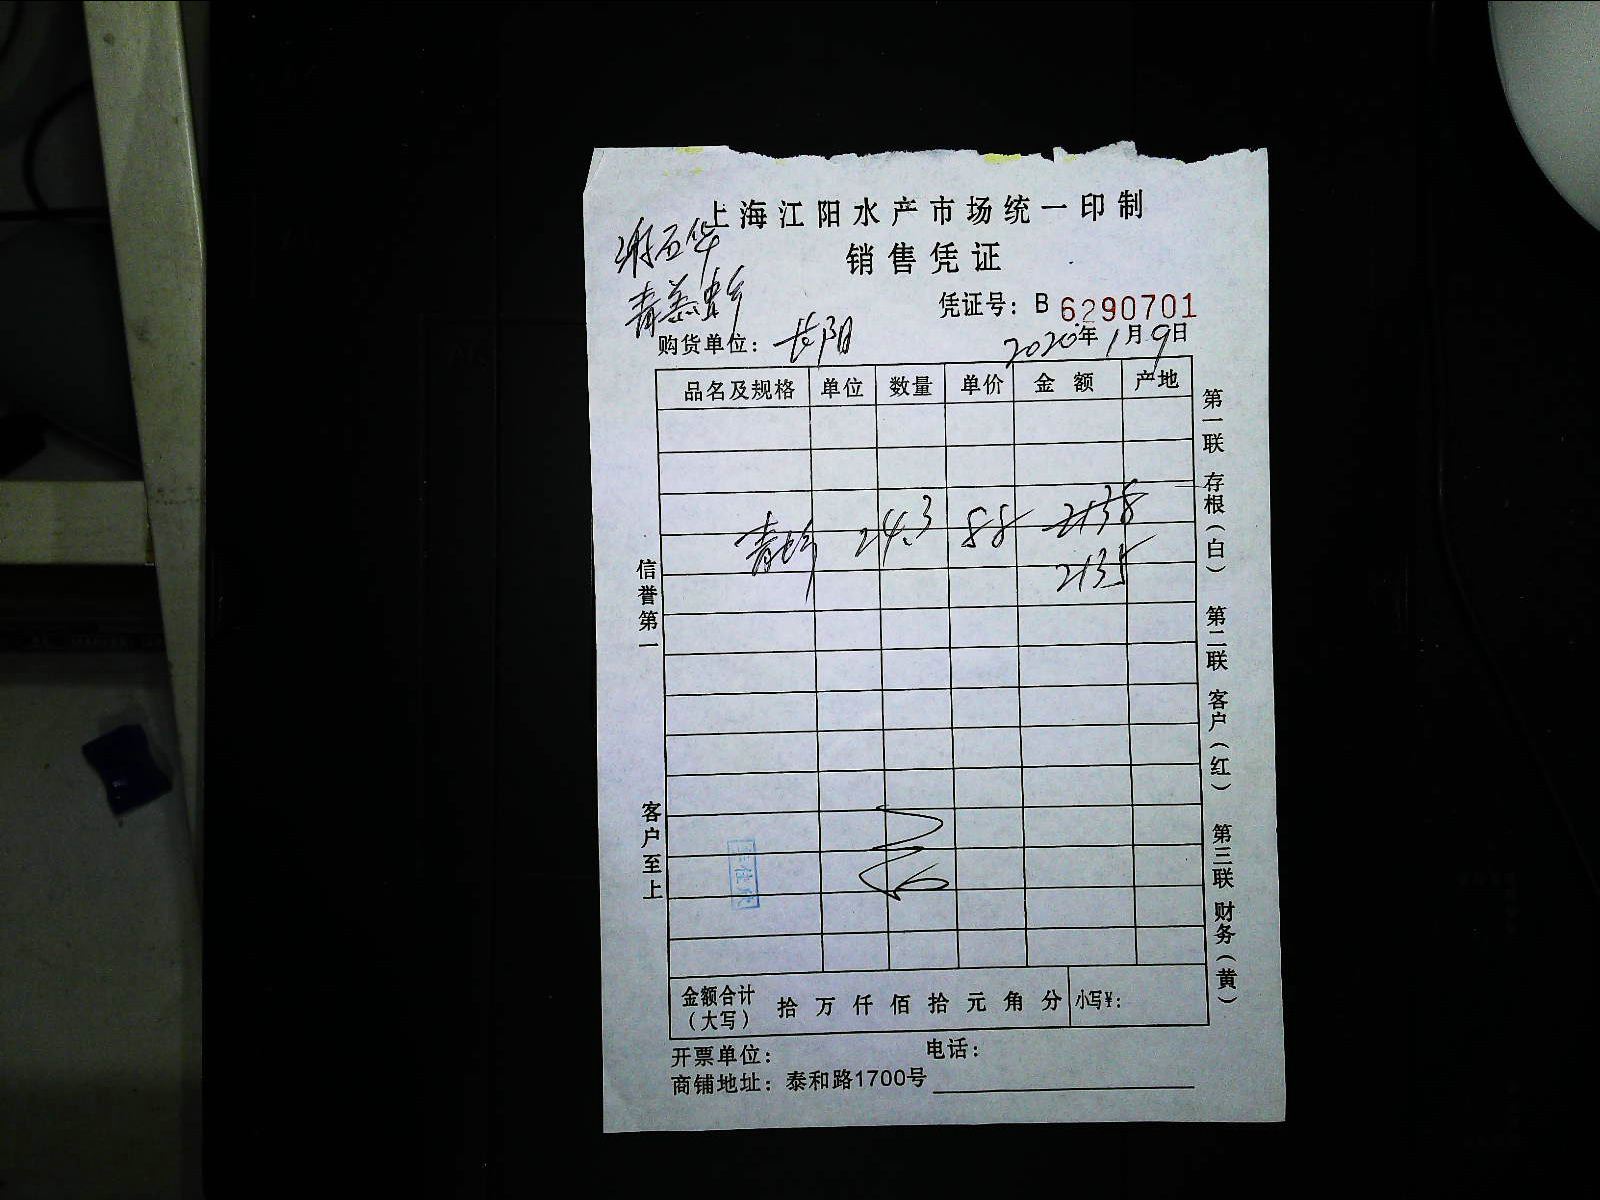 上海江阳水产市场统一印制
销售凭证
凭证号：B 6290701
购货单位：长阳
2020年1月9日
品名及规格 单位 数量 单价 金额 产地
24.3 88 2138
2135
信誉第一
客户至上
第一联 存根（白） 第二联 客户（红） 第三联 财务（黄）
金额合计（大写） 拾 万 仟 佰 拾 元 角 分 小写¥：
开票单位： 电话：
商铺地址：泰和路1700号